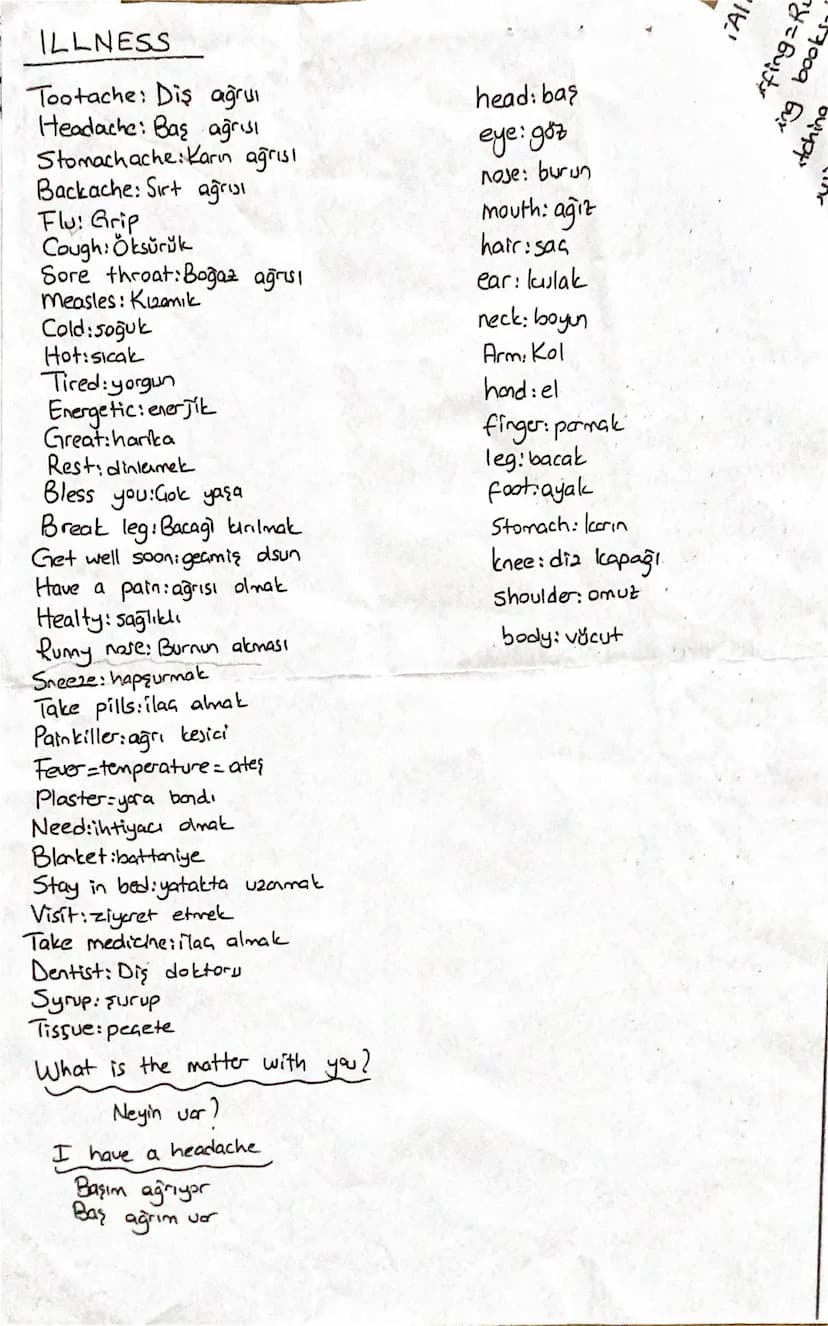 ILLNESS
Tootache: Diş ağrısı
Headache: Baş ağrısı
Stomachache: Karın ağrısı
Backache: Sırt ağrısı
Flu: Grip
Cough: Öksürük
Sore throat: Boğaz ağrısı
Measles: Kızamık
Cold: soğuk
Hot: sıcak
Tired: yorgun
Energetic: enerjik
Great: harika
Rest: dinlemek
Bless you: Çok yaşa
Break leg: Bacağı kırılmak
Get well soon: geçmiş olsun
Have a pain: ağrısı olmak
Healty: sağlıklı
Runny nose: Burnun akması
Sneeze: hapşurmak
Take pills: ilaç almak
Painkiller: ağrı kesici
Fever = temperature = ateş
Plaster = yara bandı
Need: ihtiyacı olmak
Blanket: battaniye
Stay in bed: yatakta uzanmak
Visit: ziyaret etmek
Take medicine: ilaç almak
Dentist: Diş doktoru
Syrup: şurup
Tissue: peçete
What is the matter with you?
Neyin var?
I have a headache
Başım ağrıyor
Baş ağrım var
head: baş
eye: göz
nose: burun
mouth: ağız
hair: saç
ear: kulak
neck: boyun
Arm: Kol
hand: el
finger: parmak
leg: bacak
foot: ayak
Stomach: karın
knee: diz kapağı
shoulder: omuz
body: vücut
books